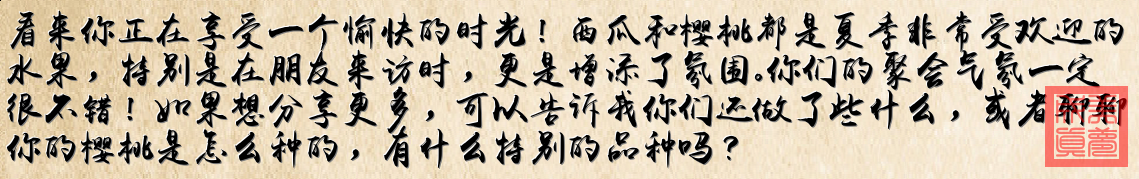 看来你正在享受一个愉快的时光！西瓜和樱桃都是夏季非常受欢迎的
水果，特别是在朋友来访时，更是增添了氛围。你们的聚会气氛一定
很不错！如果想分享更多，可以告诉我你们还做了些什么，或者聊聊
你的樱桃是怎么种的，有什么特别的品种吗？